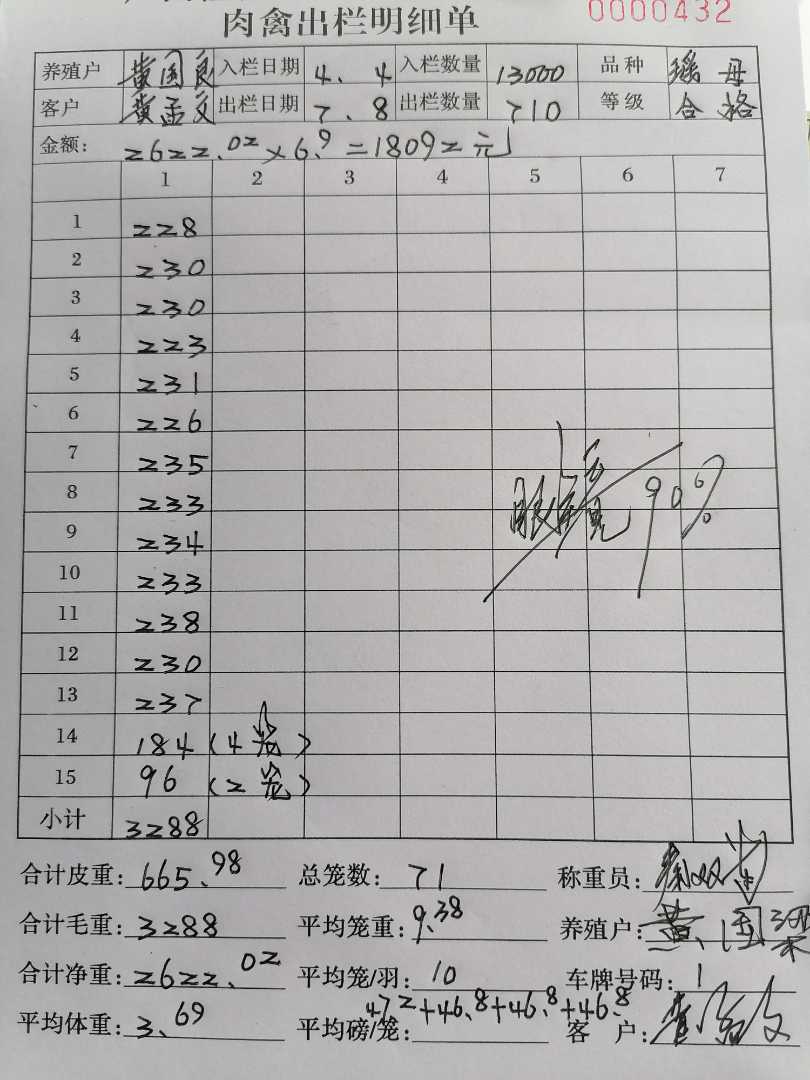 肉禽出栏明细单
0000432
养殖户 黄国良 入栏日期 4.4 入栏数量 13000 品种 瑶母
客户 黄孟文 出栏日期 7.8 出栏数量 710 等级 合格
金额: 2622.02×6.9=18092元
1 2 3 4 5 6 7
1 228
2 230
3 230
4 223
5 231
6 226
7 235
8 233
9 234
10 233
11 238
12 230
13 237
14 184(4笼)
15 96(2笼)
小计 3288
90%
合计皮重: 665.98 总笼数: 71 称重员:
合计毛重: 3288 平均笼重: 9.38 养殖户: 黄国
合计净重: 2622.02 平均笼/羽: 10 车牌号码: 1
平均体重: 3.69 平均磅/笼: 47.2+46.8+46.8+46.8 客户: